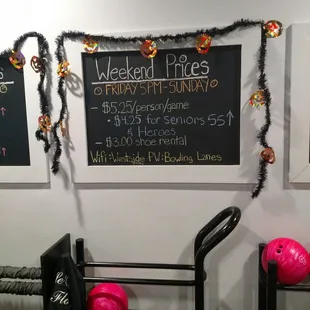 Weekend Prices
FRIDAY 5PM-SUNDAY
- $5.25/person/game
• $4.25 for seniors 55↑
& Heroes
- $3.00 shoe rental
Wifi: Westside PW: Bowling Lanes